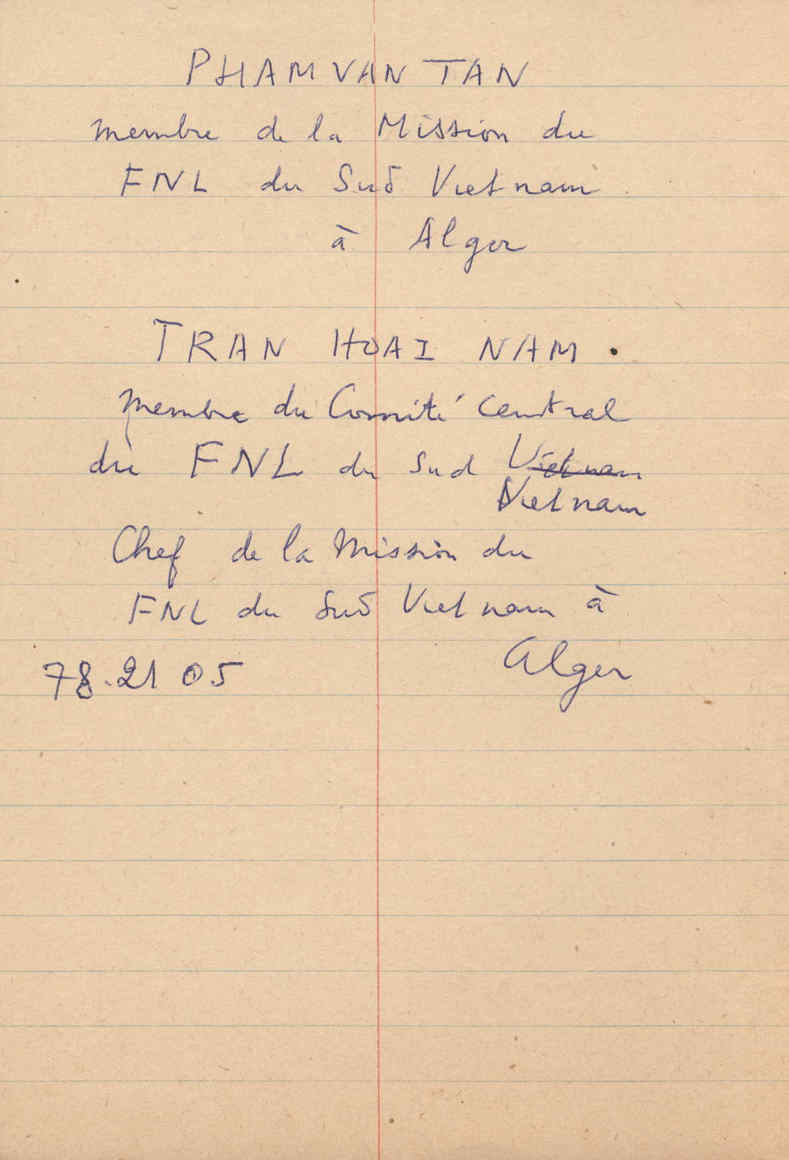 PHAM VAN TAN
membre de la Mission du
FNL du Sud Vietnam
à Alger
TRAN HOAI NAM.
membre du Comité central
du FNL du Sud Vietnam
Vietnam
Chef de la Mission du
FNL du Sud Vietnam à
Alger
78.21 05